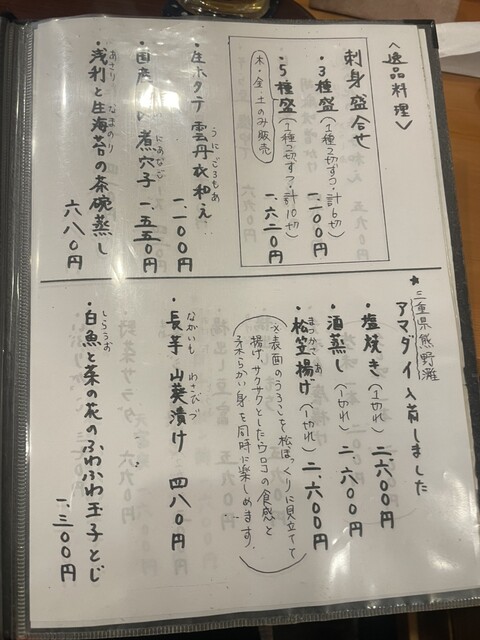 〈逸品料理〉
刺身盛合せ
・3種盛(1種2切ずつ・計6切)
一、一〇〇円
・5種盛(1種2切ずつ・計10切)
一、六二〇円
木・金・土のみ販売
・生ホタテ 雲丹衣和え
うにごろもあ
一、一〇〇円
・国産 煮穴子
にあなご
一、五五〇円
・浅利と生海苔の茶碗蒸し
あさり なまのり
六八〇円
★三重県熊野灘
アマダイ入荷しました
・塩焼き(1切れ)
二、六〇〇円
・酒蒸し(1切れ)
二、六〇〇円
・松笠揚げ(1切れ)
まつかさあ
二、六〇〇円
※表面のうろこを松ぼっくりに見立てて
揚げ、サクサクとしたウロコの食感と
柔らかい身を同時に楽しめます。
・長芋 山葵漬け
ながいも わさびづ
四八〇円
・白魚と菜の花のふわふわ玉子とじ
しらうお
一、三〇〇円